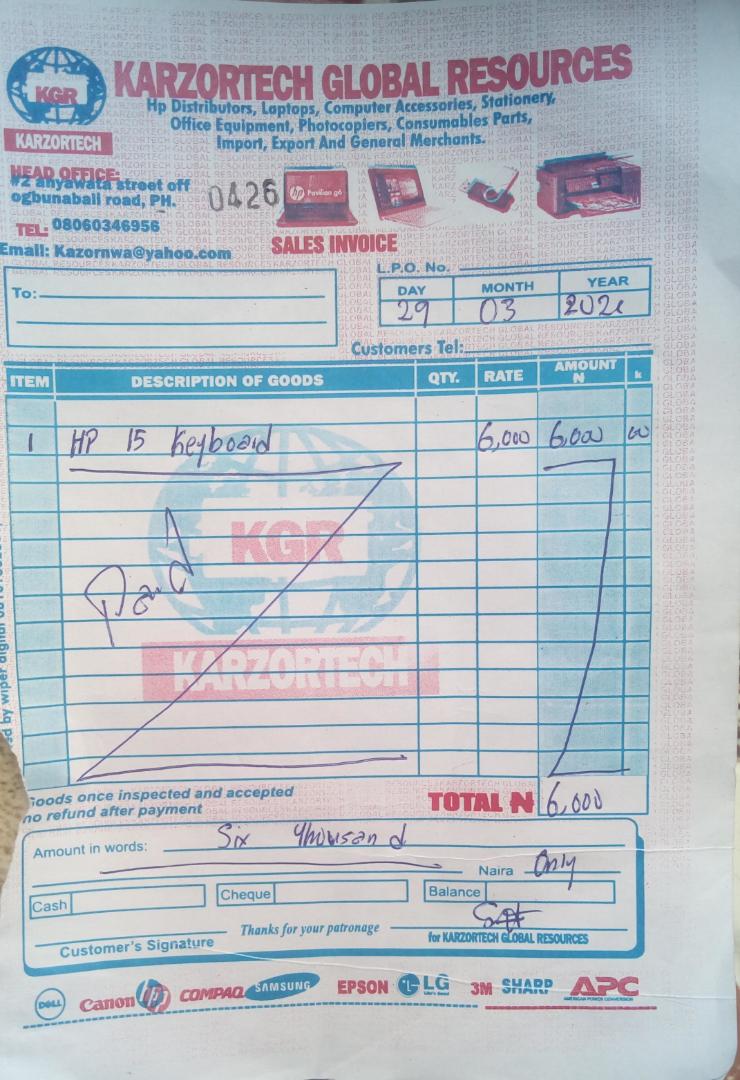 KGR
KARZORTECH
KARZORTECH GLOBAL RESOURCES
Hp Distributors, Laptops, Computer Accessories, Stationery,
Office Equipment, Photocopiers, Consumables Parts,
Import, Export And General Merchants.
HEAD OFFICE:
#2 anyawata street off
ogbunabali road, PH.
0426
hp Pavilion g6
TEL: 08060346956
Email: Kazornwa@yahoo.com
SALES INVOICE
L.P.O. No.
To:
DAY MONTH YEAR
29 03
Customers Tel:
ITEM DESCRIPTION OF GOODS QTY. RATE AMOUNT N k
1 HP 15 Keyboard 6,000 6,000 00
KGR
Paid
KARZORTECH
Goods once inspected and accepted
no refund after payment
TOTAL ₦ 6,000
Amount in words: Six thousand
Naira Only
Cash Cheque Balance
Thanks for your patronage
Customer's Signature for KARZORTECH GLOBAL RESOURCES
DELL Canon hp COMPAQ SAMSUNG EPSON LG Life's Good 3M SHARP APC
AMERICAN POWER CONVERSION